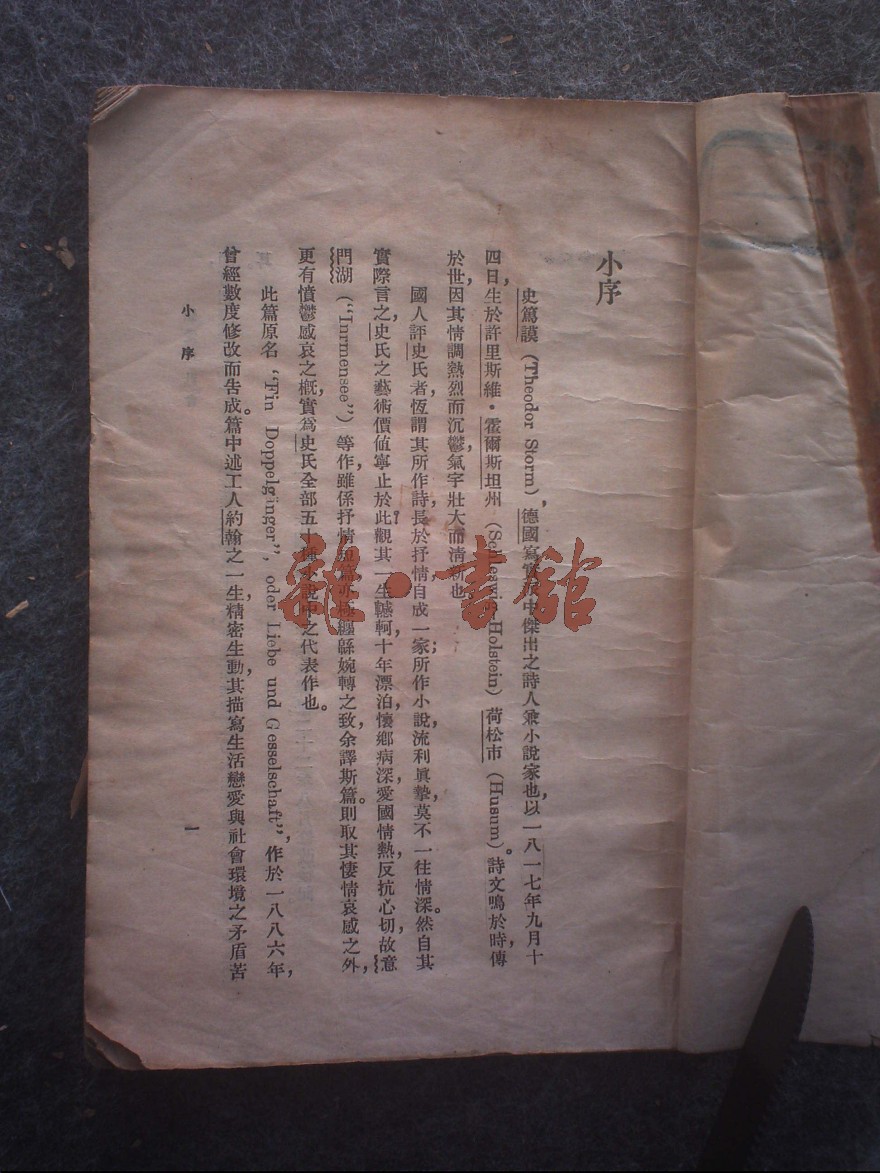 小序
史篤謨（Theodor Storm），德國寫實派中傑出之詩人兼小說家也，以一八一七年九月十
四日，生於許里斯維·霍爾斯坦州（Schleswig-Holstein）荷松市（Husum）。詩文鳴於時，傳
於世，因其情調熱烈而沉鬱，氣宇壯大而清新也
國人評史氏者，恆謂其所作詩，長於抒情，自成一家；所作小說，流利眞摯，莫不一往情深。然自其
實際言之，史氏之藝術價値，寧止於此？觀其一生轗軻，十年漂泊，懷鄉病深，愛國情熱，反抗心切，故意
門湖（“Inrmensee”）等作，雖係抒情短篇，亦極纏緜婉轉之致，余譯斯篇。則取其悽情哀感之外，
更有憤鬱感哀之槪，實爲史氏全部五十種小說中之代表作也。
此篇原名“Fin Doppelgänger”, oder Liebe und Gesselschaft”，作於一八八六年，
曾經數度修改而告成。篇中述工人約翰之一生，精密生動，其描寫生活戀愛與社會環境之矛盾苦
小序
一
雜·書館